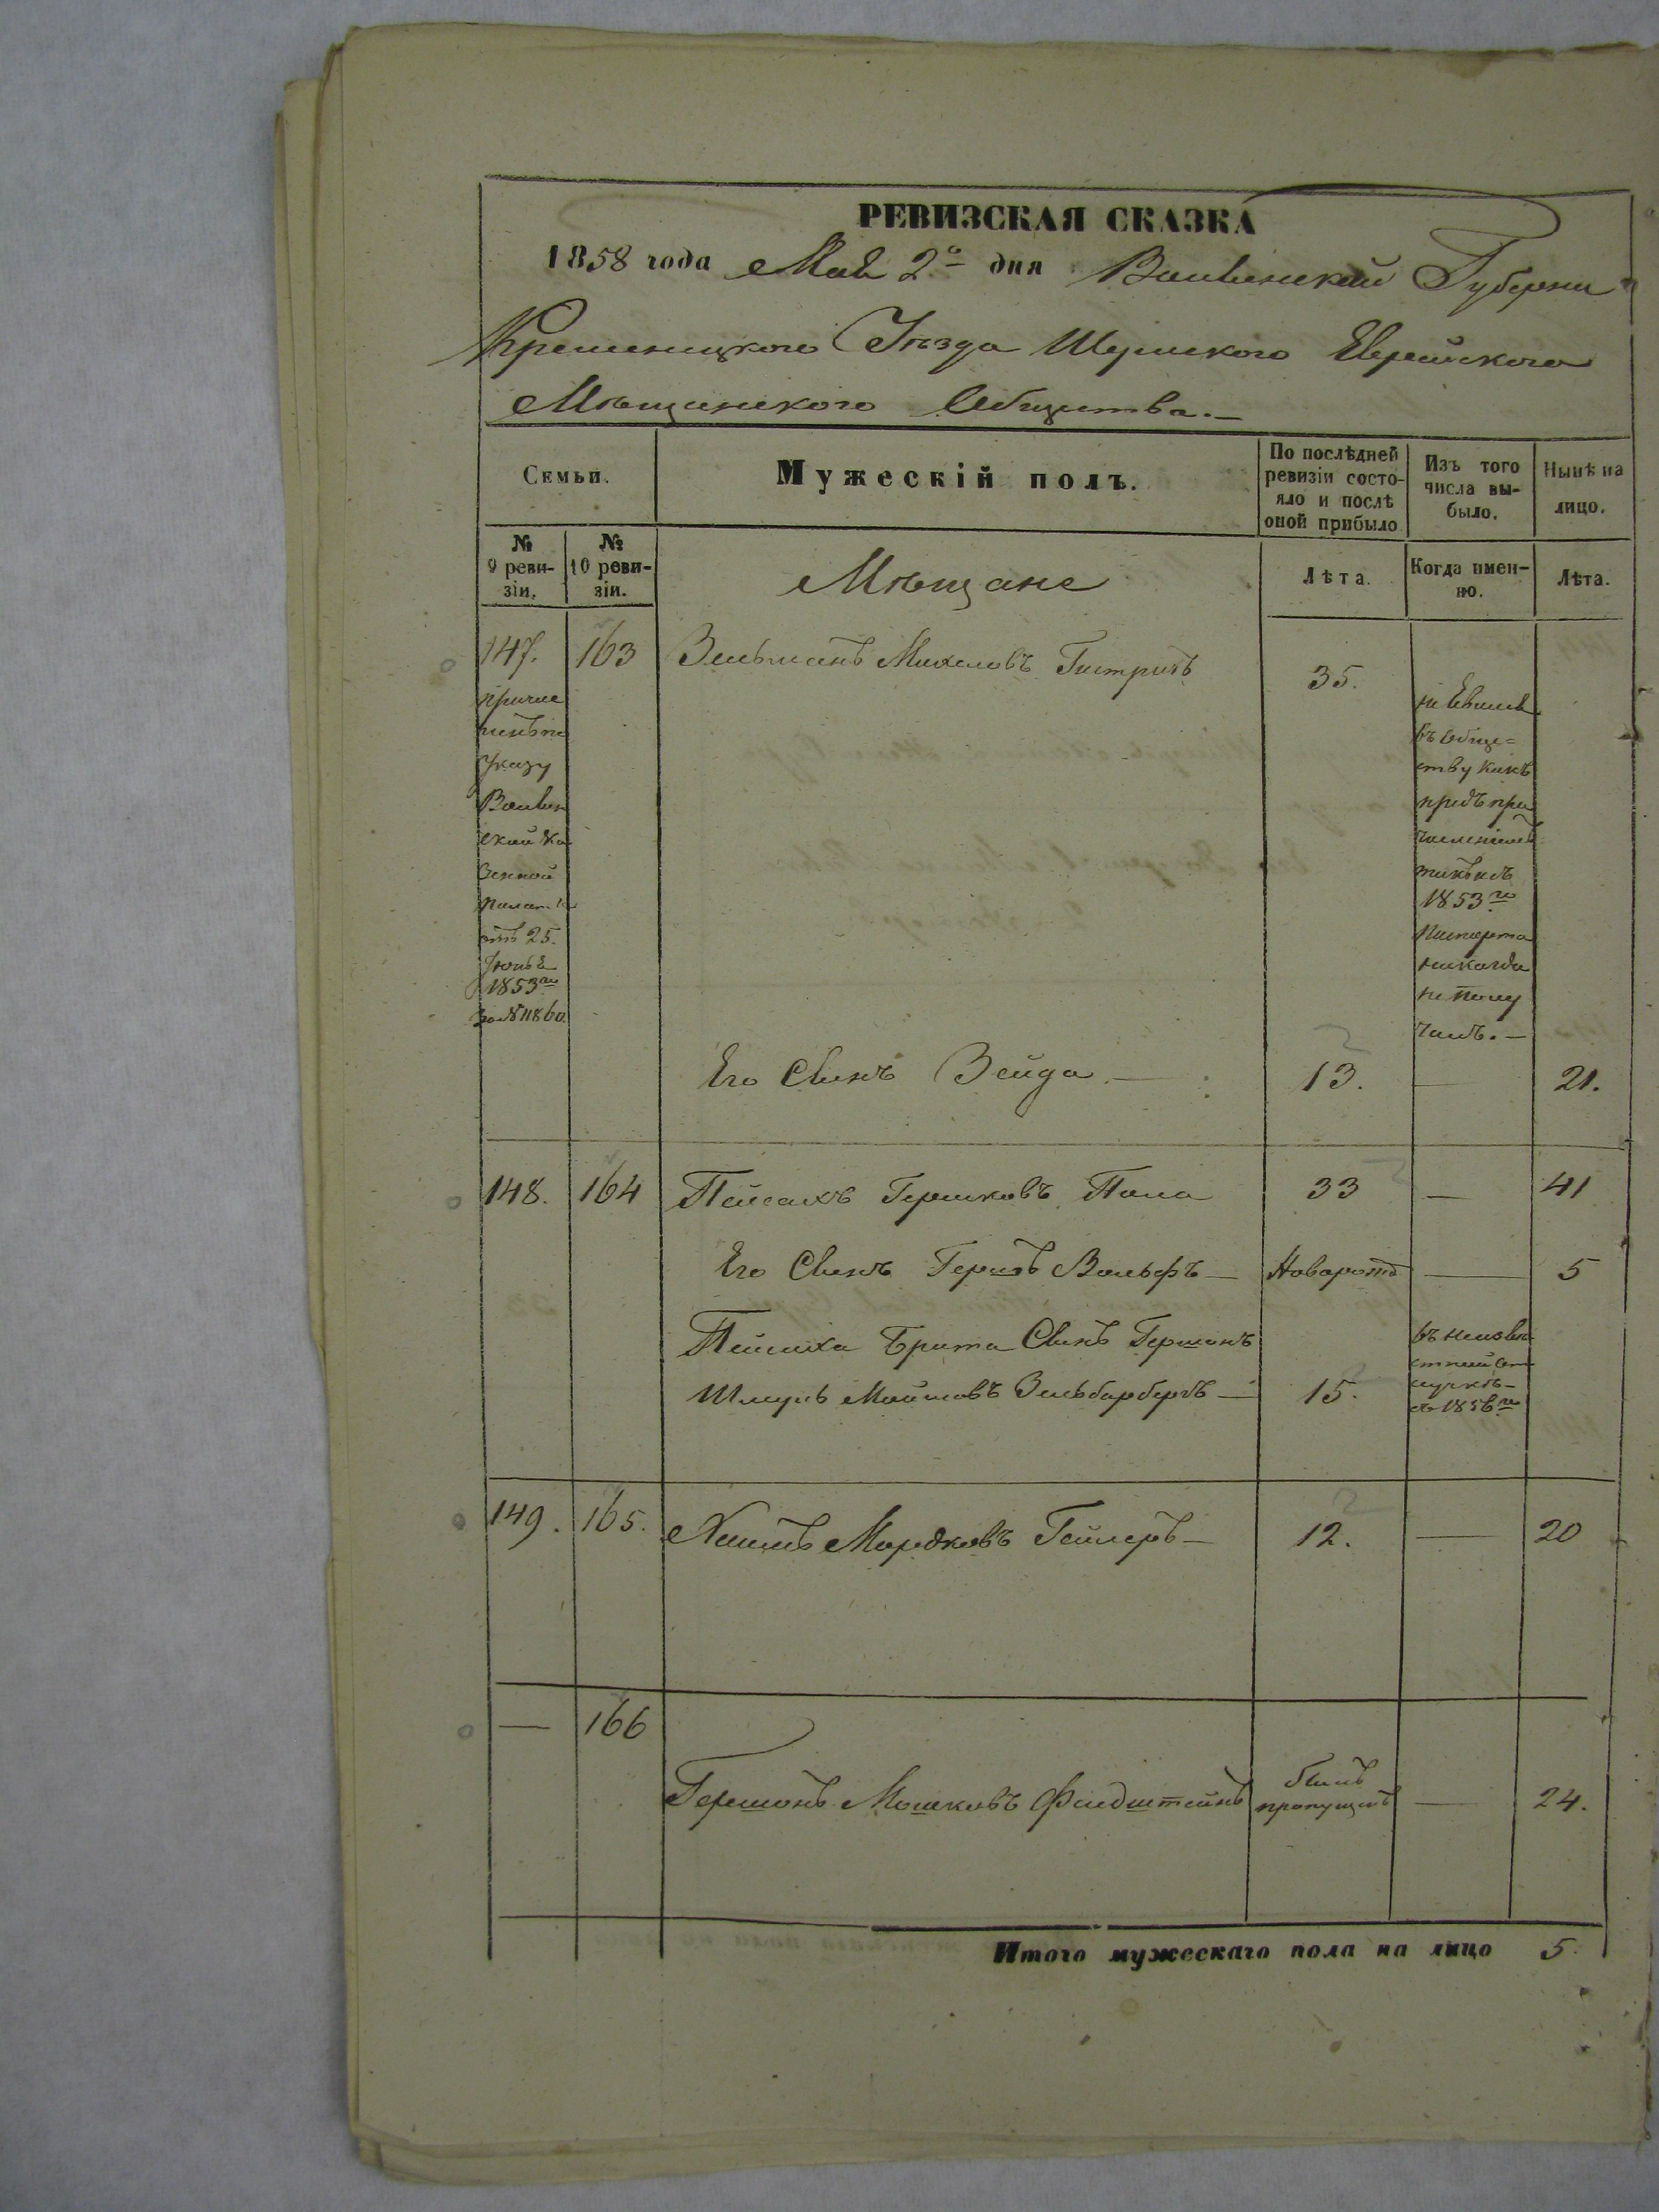 РЕВИЗСКАЯ СКАЗКА
1858 года Мая 2го дня Волынской Губерніи
Кременецкого Уѣзда Шумского Еврейского
Мѣщанского Общества.—
Семьи.
Мужескій полъ.
По послѣдней ревизіи состо-
яло и послѣ оной прибыло
Изъ того числа вы-
было.
Нынѣ на лицо.
№ 9 реви-
зіи.
№ 10 реви-
зіи.
Мѣщане
Лѣта.
Когда имен-
но.
Лѣта.
147. 163 Зельманъ Михелевъ 35.
причис
ленъ по
Указу
Волын
ской Ка
зенной
Палаты
отъ 25.
Іюня
1853го
за № 11860
не явился
въ Обще=
ству какъ
предъ при
численіемъ
такъ и съ
1853го
Пашпорта
никогда
не полу
чалъ.—
Его Сынъ Зейда — 13. — 21.
148. 164 Пейсахъ Гершковъ 33 — 41
Его Сынъ Гершъ Вольфъ — Новорожд — 5
Пейсаха Брата Сынъ Гершонъ
Шмуль Зильбербергъ — 15.
въ неизвѣ
стной от
лучкѣ
съ 1856го
149. 165. Хаимъ Мордковъ Гейлеръ — 12. — 20
— 166
Гершонъ Мошковъ Фельдштейнъ былъ
пропущенъ — 24.
Итого мужескаго пола на лицо 5.